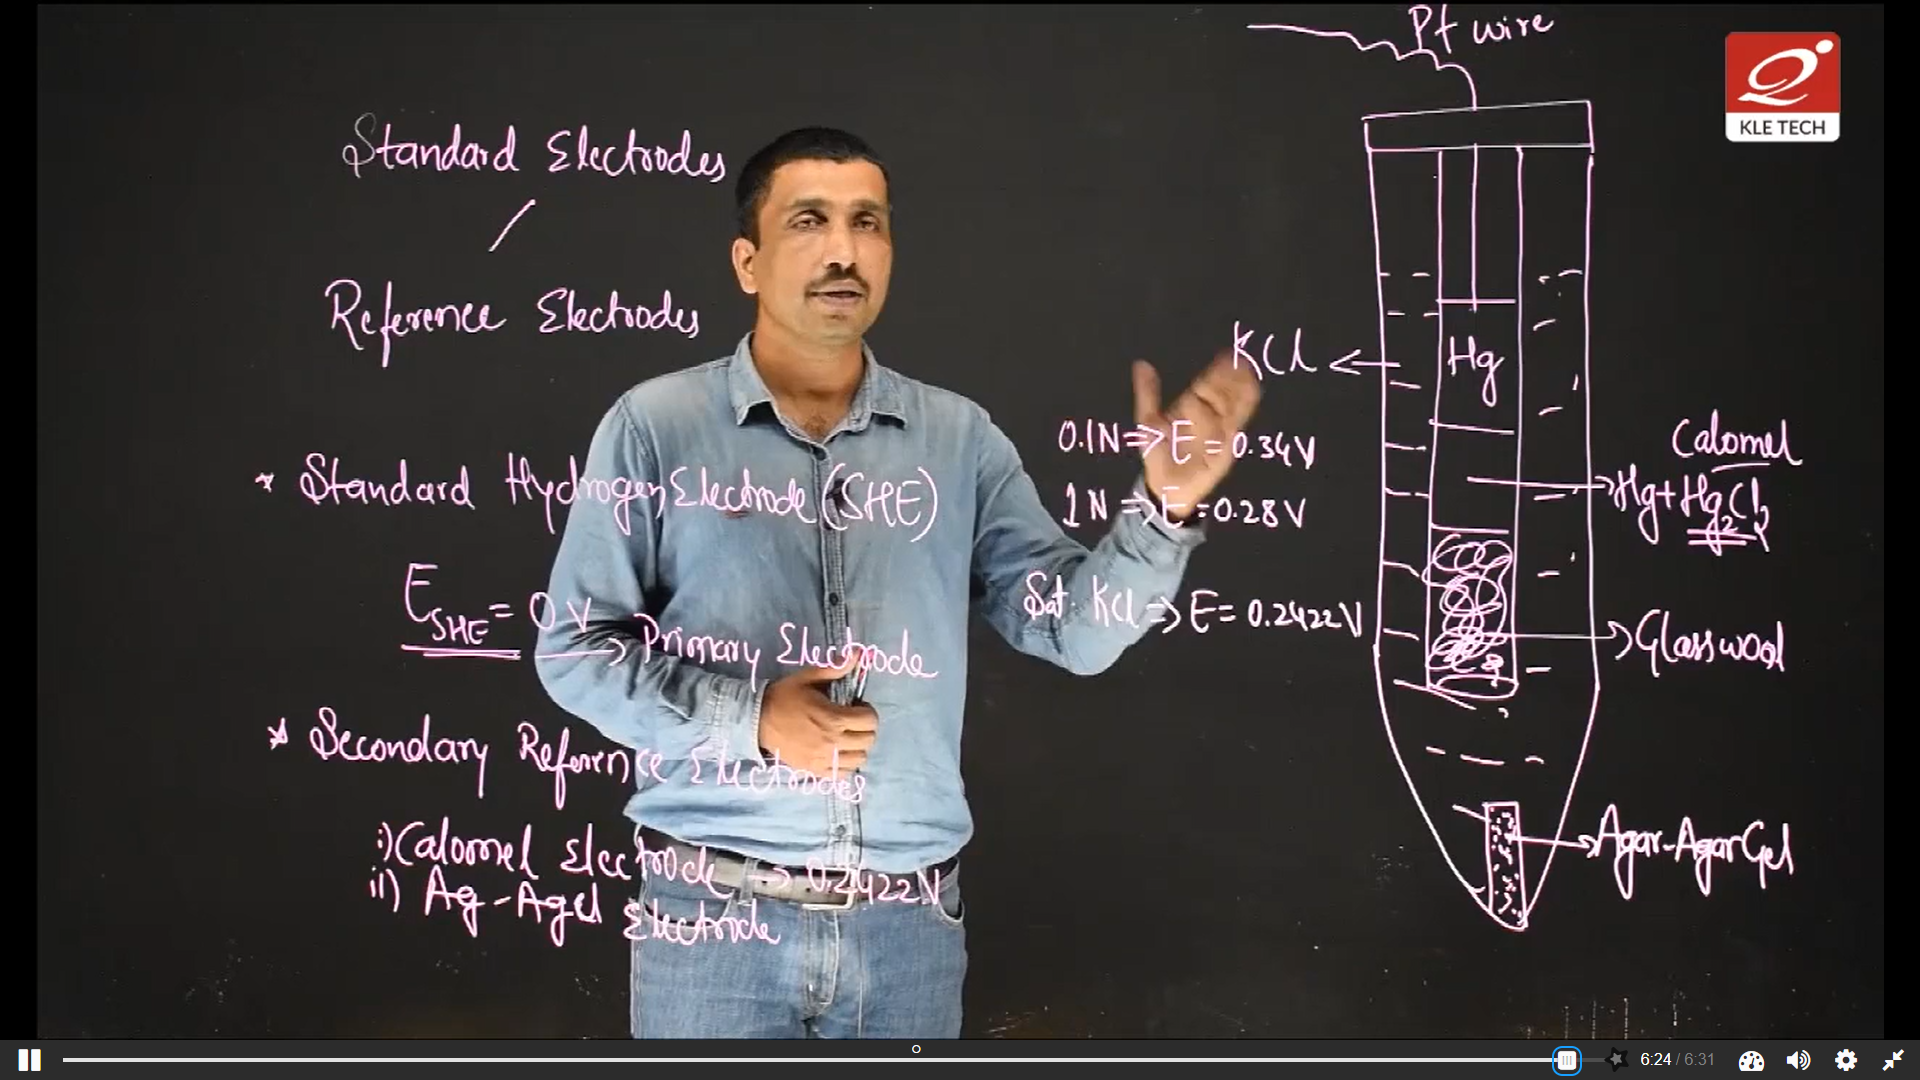 Standard Electrodes
/
Reference Electrodes
* Standard Hydrogen Electrode (SHE)
E_SHE = 0 V → Primary Electrode
* Secondary Reference Electrodes
i) Calomel Electrode → 0.2422V
ii) Ag-Agcl Electrode
Pt wire
KCl ←
Hg
0.1N => E = 0.34V
1N => E = 0.28V
Sat. KCl => E = 0.2422V
Calomel
→ Hg + Hg2Cl2
→ Glass wool
→ Agar-Agar Gel
KLE TECH
6:24 / 6:31